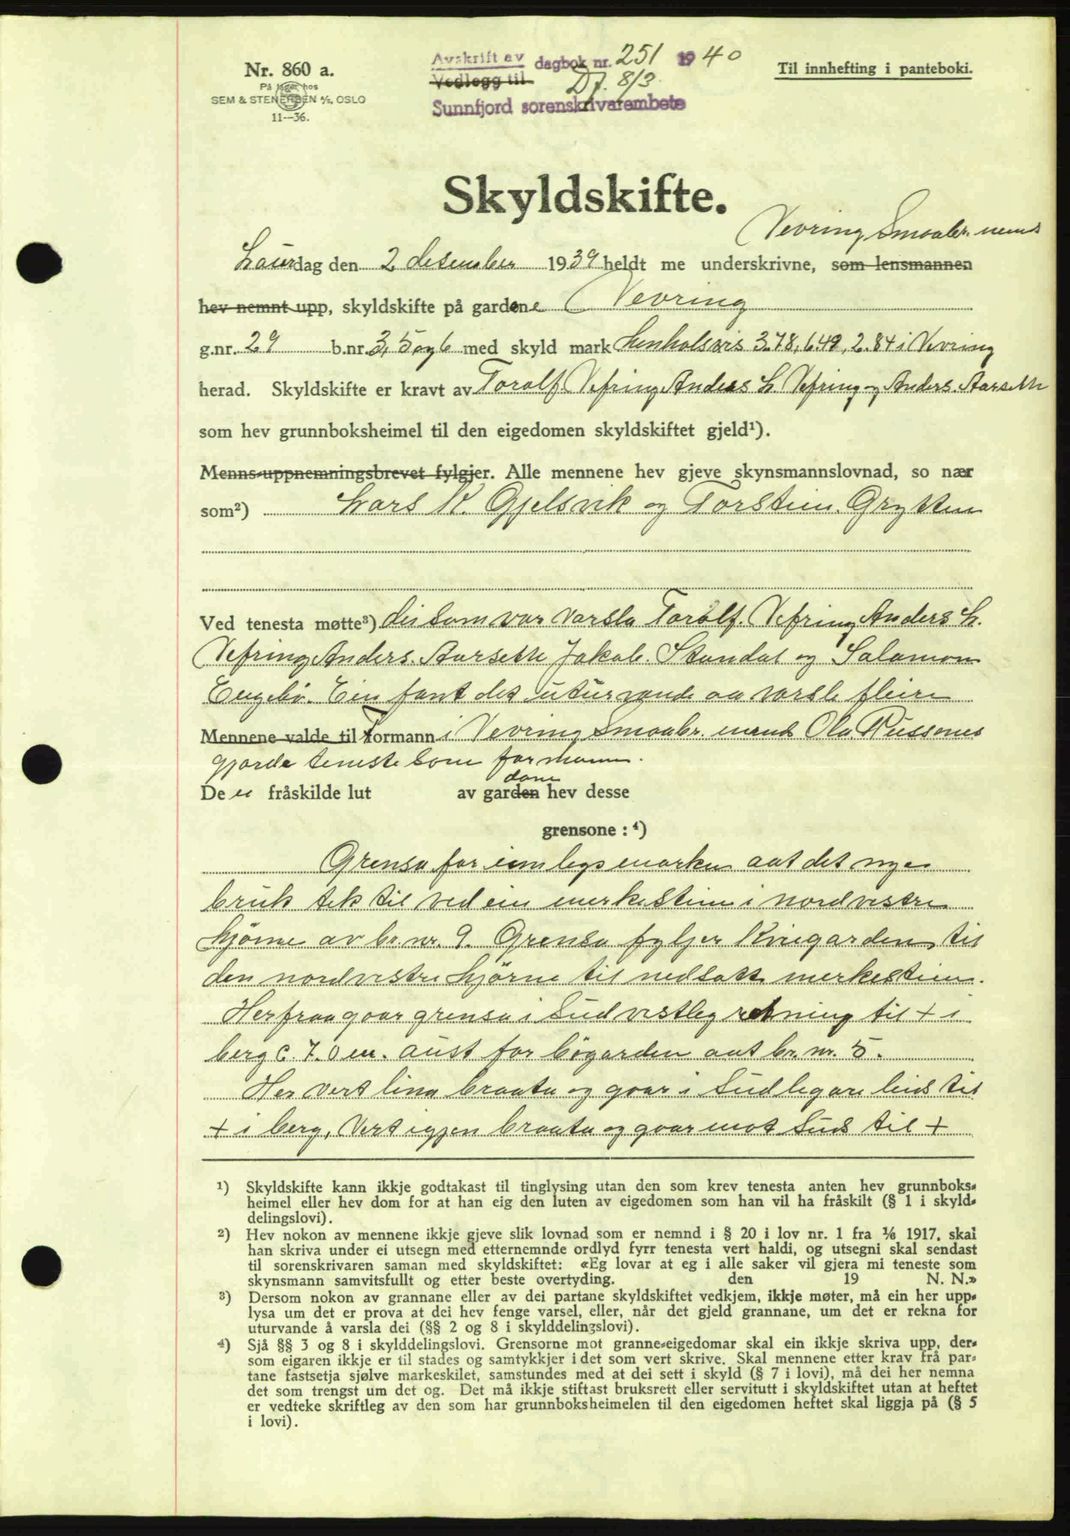 Nr. 860 a.
På lager hos
SEM & STENERSEN A/S, OSLO
11—36.
Avskrift av dagbok nr. 251 1940
Vedlegg til Df. 8/3
Sunnfjord sorenskrivarembete
Til innhefting i panteboki.
Skyldskifte.
Vevring Smaabr. nemd
Laurdag den 2 desember 1939 heldt me underskrivne, som lensmannen
hev nemnt upp, skyldskifte på gardene Vevring
g.nr. 29 b.nr. 3, 5 og 6 med skyld mark henholsvis 3.78, 6.49, 2.84 i Vevring
herad. Skyldskifte er kravt av Torolf Vefring Anders L. Vefring og Anders Aarseth
som hev grunnboksheimel til den eigedomen skyldskiftet gjeld¹).
Menns-uppnemningsbrevet fylgjer. Alle mennene hev gjeve skynsmannslovnad, so nær
som²) Lars K. Gjelsvik og Torstein Grytten
Ved tenesta møtte³) dei som var varsla Torolf. Vefring Anders L.
Vefring Anders. Aarseth Jakob. Standal og Salamon
Engebø. Ein fant det uturvande aa varsle fleire
Mennene valde til Formann i Vevring Smaabr. nemd Ola Russenes
gjorde teneste som formann.
De ei fråskilde lut av garden dane hev desse
grensone: ⁴)
Grensa for innlegsmarken aat det nye
bruk tek til ved ein merkestein i nordvestre
hjørne av br. nr. 9. Grensa fyljer Kvigarden til
den nordvestre hjørne til nedsatt merkestein.
Herfraa gaar grensa i Sudvestleg retning til + i
berg c. 7.0 m. aust for bøgarden aat br. nr. 5.
Her vert lina braata og gaar i Sudlegare leid til
+ i berg, Vert igjen braata og gaar mot Sud til +
¹) Skyldskifte kann ikkje godtakast til tinglysing utan den som krev tenesta anten hev grunnboks-
heimel eller hev dom for at han eig den luten av eigedomen som han vil ha fråskilt (§ 1 i skyld-
delingslovi).
²) Hev nokon av mennene ikkje gjeve slik lovnad som er nemnd i § 20 i lov nr. 1 fra 1/6 1917, skal
han skriva under ei utsegn med etternemnde ordlyd fyrr tenesta vert haldi, og utsegni skal sendast
til sorenskrivaren saman med skyldskiftet: «Eg lovar at eg i alle saker vil gjera mi teneste som
skynsmann samvitsfullt og etter beste overtyding. den 19 N. N.»
³) Dersom nokon av grannane eller av dei partane skyldskiftet vedkjem, ikkje møter, må ein her upp-
lysa um det er prova at dei hev fenge varsel, eller, når det gjeld grannane, um det er rekna for
uturvande å varsla dei (§§ 2 og 8 i skylddelingslovi).
⁴) Sjå §§ 3 og 8 i skylddelingslovi. Grensorne mot granne-eigedomar skal ein ikkje skriva upp, der-
som eigaren ikkje er til stades og samtykkjer i det som vert skrive. Skal mennene etter krav frå par-
tane fastsetja sjølve markeskilet, samstundes med at dei sett i skyld (§ 7 i lovi), må dei her nemna
det som trengst um det og. Det må ikkje stiftast bruksrett eller servitutt i skyldskiftet utan at heftet
er vedteke skriftleg av den som har grunnboksheimelen til den eigedomen heftet skal liggja på (§ 5
i lovi).